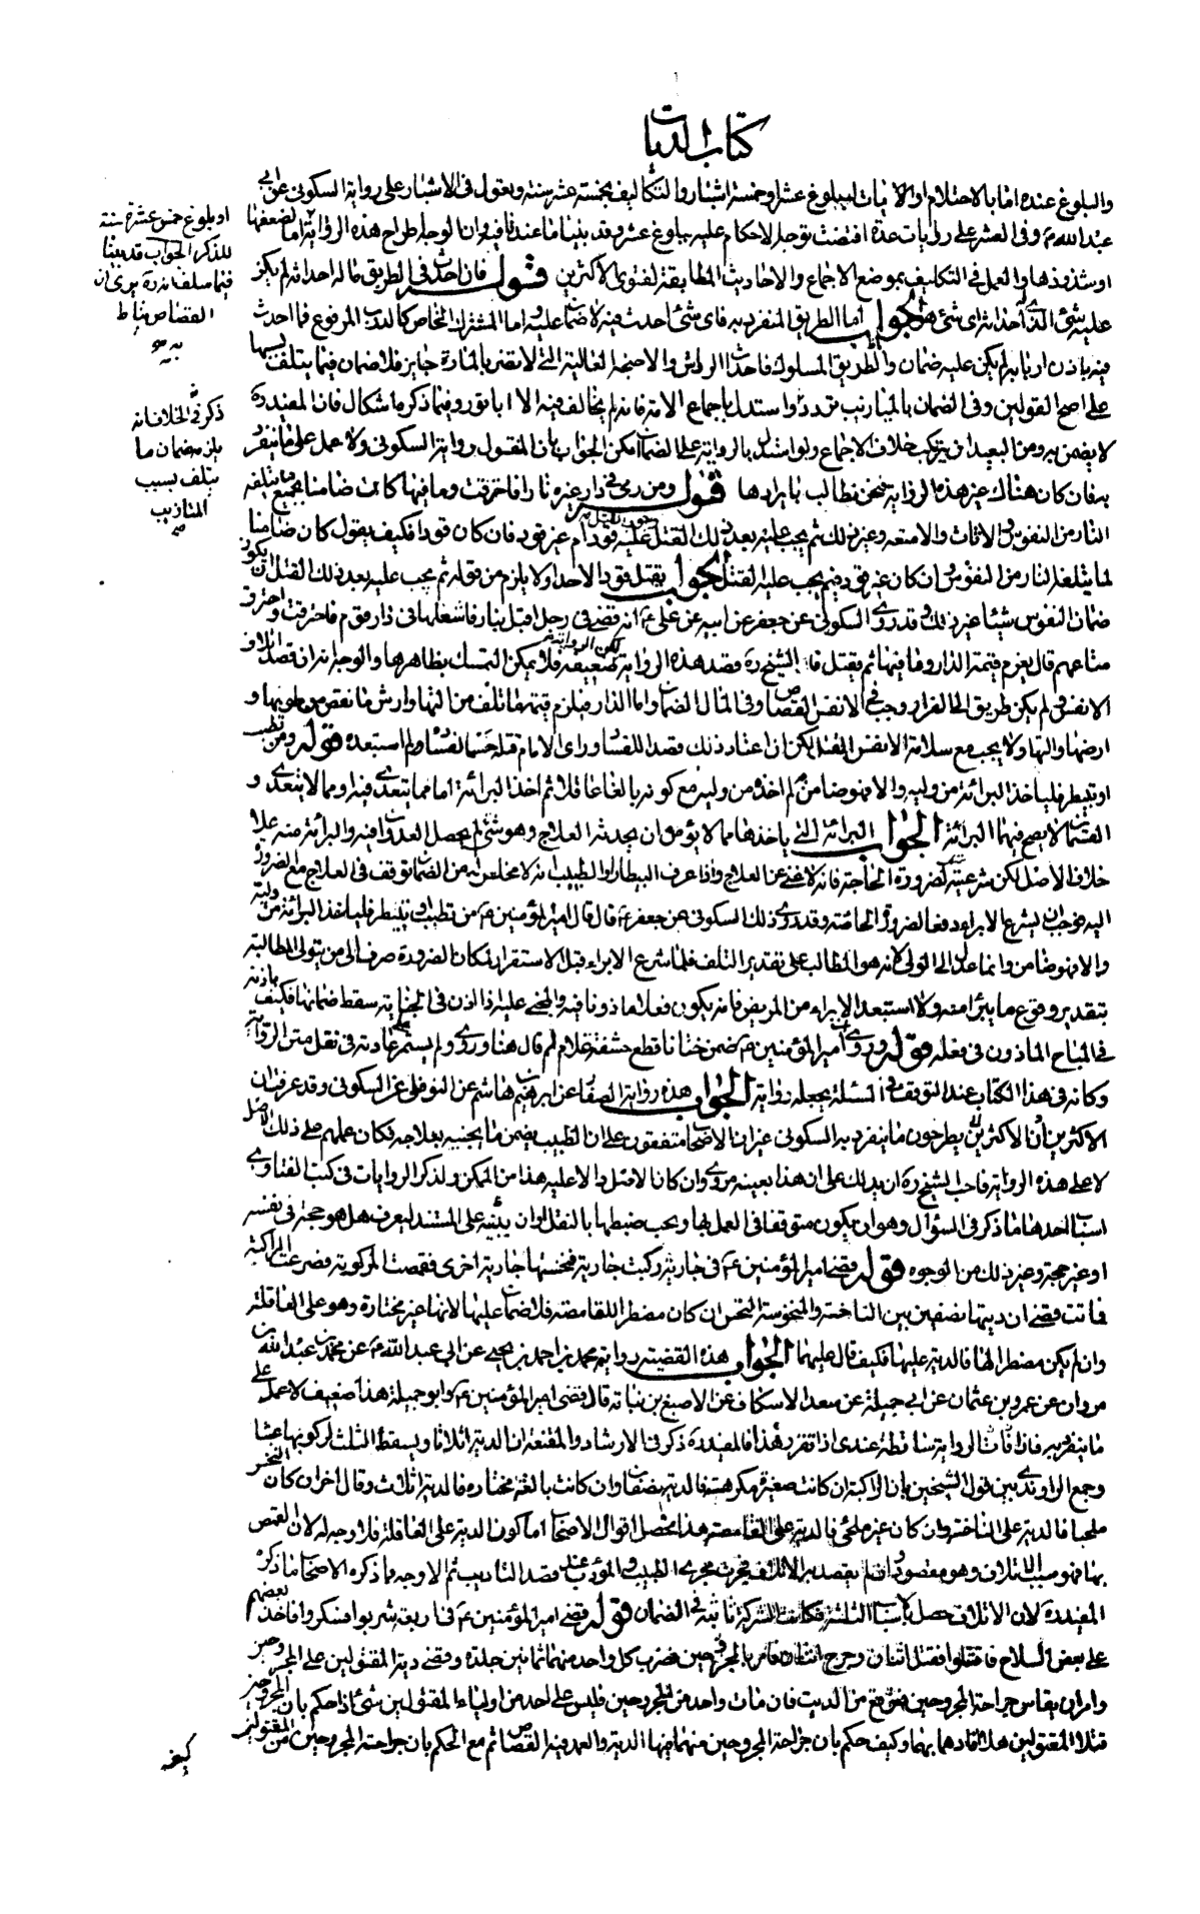 كتاب الديات
والبلوغ عنده اما بالاحتلام او الانبات لبلوغ عشر او خمسة اشبار والتكاليف بخمسة عشر سنة ويعول في الاشبار على رواية السكوني عن ابي
عبد الله ع وفي العشر على روايات عدة اقتضت توجه الاحكام عليه ببلوغ عشر وقد بينا ما عندنا فيه وان الوجه طراح هذه الرواية اما لضعفها
او شذوذها والعمل في التكليف بموضع الاجماع والاحاديث المطابقة لفتوى الاكثرين قوله فان احدث في الطريق ماله احداثه لم يكن
عليه شئ الذي احداثه اي شئ هو الجواب اما الطريق المنفرد به فاي شئ احدث فيه لا ضمان عليه واما المشترك الخاص كالدرب المرفوع فما احدث
فيه باذن اربابه لم يكن عليه ضمان والطريق المسلوك فاحداث الرواشن والاجنحة العالية التي لا تضر بالمارة جايز فلا ضمان فيما يتلف بسببها
على اصح القولين وفي الضمان بالميازيب تردد واستدل باجماع الامة فانه لم يخالف فيه الا ابا ثور وفيما ذكره اشكال فان المفيد ره
لا يضمن به ومن البعيد ان يرتكب خلاف الاجماع ولو استدل بالرواية على الضمان امكن الجواب بان المنقول رواية السكوني ولا عمل على ما ينفرد
به فان كان هناك غير هذه الرواية فنحن نطالب بايرادها قوله ومن رمى في دار غيره نارا فاحترقت وما فيها كان ضامنا بجميع ما تتلفه
النار من النفوس والاثاث والامتعة وغير ذلك ثم يجب عليه بعد ذلك القتل عليه قود ام غير قود فان كان قودا فكيف يقول كان ضامنا
لما يتلفه النار من النفوس وان كان غير قود فبم يجب عليه القتل الجواب يقتل قودا لاحدا ولا يلزم من قوله ثم يجب عليه بعد ذلك القتل ان يكون
ضمان النفوس شيئا غير ذلك وقد روى السكوني عن جعفر عن ابيه عن علي ع انه قضى في رجل اقبل بنار فاشعلها في دار قوم فاحترقت واحترق
متاعهم قال يغرم قيمة الدار وما فيها ثم يقتل قال الشيخ ره وقصد هذه الرواية لكن الرواية ضعيفة فلا يمكن التمسك بظاهرها والوجه انه ان قصد اتلاف
الانفس ولم يكن طريق الى الفرار وجب في الانفس القصاص وفي المال الضمان واما الدار فيلزم قيمة ما تلف من التها وارش ما نقص من طوبها و
ارضها والتها ولا يجب مع سلامة الانفس القتل لكن ان اعتاد ذلك قصدا للفساد وراى الامام قتله حسما لفساده لم استبعده قوله ومن تطبب
او تبيطر فلياخذ البراءة من وليه والا فهو ضامن لم اخذه من وليه مع كونه بالغا عاقلا ثم اخذ البرائة اما مما يتعدى فيه او مما لا يتعدى و
القسمان لا يصح فيهما البرائة الجواب البرائة التي ياخذها مما لا يؤمن ان يحدثه العلاج وهو شئ لم يحصل العدوان فيه والبرائة منه على
خلاف الاصل لكن شرعيته لضرورة الحاجة فانه لا غنى عن العلاج واذا عرف البيطار او الطبيب انه لا مخلص له من الضمان توقف في العلاج مع الضرورة
اليه فوجب ان يشرع الابراء دفعا لضرورة الحاجة وقد روى ذلك السكوني عن جعفر ع قال قال امير المؤمنين ع من تطبب او تبيطر فلياخذ البرائة من وليه
والا فهو ضامن وانما عدل الى الولي لانه هو المطالب على تقدير التلف فلما شرع الابراء قبل الاستقرار لمكان الضرورة صرف الى من يتولى المطالبة
بتقدير وقوع ما يبرأ منه ولا استبعد الابراء من المريض فانه يكون فعلا ماذونا فيه والمجني عليه اذا اذن في الجناية سقط ضمانها فكيف باذنه
في المباح الماذون في فعله قوله وروي ان امير المؤمنين ع ضمن ختانا قطع حشفة غلام لم قال هنا وروي ولم يستمر على عادته في نقل متن الرواية
وكانه في هذا الكتاب عند التوقف في المسئلة يجعله رواية الجواب هذه رواية الصفار عن ابرهيم بن هاشم عن النوفلي عن السكوني وقد عرفت ان
الاكثرين يطرحون ما ينفرد به السكوني غير ان الاصحاب متفقون على ان الطبيب يضمن ما يجنيه بعلاجه فكان عملهم على ذلك الاصل
لا على هذه الرواية فاحب الشيخ ره ان يدلك على ان هذا بعينه مروي وان كان الاصل دالا عليه هذا من الممكن ولذكر الروايات في كتب الفتاوى
اسباب احدها ما ذكر في السؤال وهو ان يكون متوقفا في العمل بها ويجب ضبطها بالنقل او ان ينبه على المستند ليعرف هل هو حجة في نفسه
او غير حجة وغير ذلك من الوجوه قوله قضى امير المؤمنين ع في جارية ركبت جارية فنخستها جارية اخرى فقمصت المركوبة فصرعت الراكبة
فماتت فقضى ان ديتها نصفين بين الناخسة والمنخوسة النخس ان كان مضطرا للقامصة فلا ضمان عليها لانها غير مختارة وهو على العاقلة
وان لم يكن مضطرا لها فالدية عليها فكيف قال عليهما الجواب هذه القضية رواية محمد بن احمد بن يحيى عن ابي عبد الله ع عن محمد بن عبد الله بن
مروان عن عمرو بن عثمان عن ابي جميلة عن سعد الاسكاف عن الاصبغ بن نباتة قال قضى امير المؤمنين ع وابو جميلة هذا ضعيف لا عمل على
ما ينفرد به فاذا الرواية ساقطة عندي اذا تقرر هذا فالمفيد ره ذكر في الارشاد والمقنعة ان الدية اثلاثا ويسقط الثلث لركوبها عبثا
وجمع الراوندي بين قول الشيخين بان الراكبة ان كانت صغيرة مكرهة فالدية نصفان وان كانت بالغة مختارة فالدية اثلاث وقال اخر ان كان النخس
ملجيا فالدية على الناخسة وان كان غير ملجئ فالدية على القامصة هذا محصل اقوال الاصحاب اما كون الدية على العاقلة فلا وجه له لان القمص
بها فهو سبب الاتلاف وهو مقصود وان لم يقصد به الاتلاف فجرت مجرى الطبيب والمؤدب عند قصد التاديب ثم الاوجه مما ذكره الاصحاب ما ذكره
المفيد ره لان الاتلاف حصل بالاسباب الثلثة فكانت الشركة ثابتة في الضمان قوله قضى امير المؤمنين ع في اربعة شربوا فسكروا فاخذ بعضهم
على بعض السلاح فاقتتلوا فقتل اثنان وجرح اثنان فامر بالمجروحين فضرب كل واحد منهما ثمانين جلدة وقضى دية المقتولين على المجروحين
وامر ان يقاس جراحة المجروحين فترفع من الدية فان مات واحد من المجروحين فليس على احد من اولياء المقتولين شئ اذا حكم بان المجروحين
قتلا المقتولين هلا اقادهما بهما وكيف حكم بان جراحة المجروحين منهما فيها الدية والعمد فيه القصاص ثم مع الحكم بان جراحة المجروحين من المقتولين
كيف
او بلوغ خمس عشرة سنة
للذكر الجواب قد بينا
فيما سلف انه ره يرى ان
القصاص مناط
به
ذكر في الخلاف انه
يلزمه ضمان ما
يتلف بسبب
الميازيب